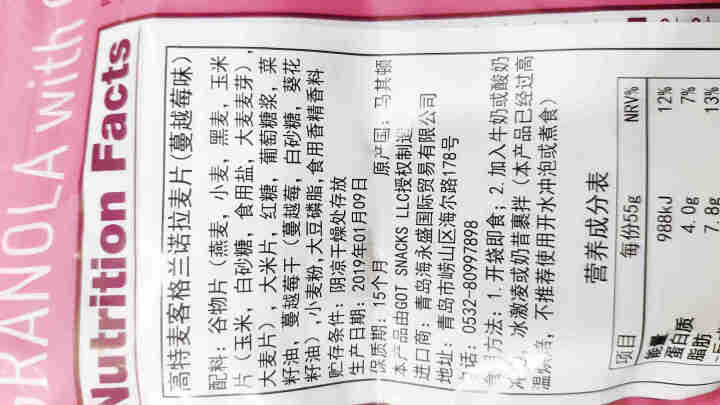 GRANOLA with
Nutrition Facts
高特麦客格兰诺拉麦片(蔓越莓味)
配料：谷物片（燕麦，小麦，黑麦，玉米
片（玉米，白砂糖，食用盐，大麦麦芽），
大麦片），大米片，红糖，葡萄糖浆，菜
籽油，蔓越莓干（蔓越莓，白砂糖，葵花
籽油）,小麦粉,大豆磷脂,食用香精香料
贮存条件：阴凉干燥处存放
生产日期：2019年01月09日
保质期：15个月 原产国：马其顿
本产品由GOT SNACKS LLC授权制造
进口商：青岛海永盛国际贸易有限公司
地址：青岛市崂山区海尔路178号
电话：0532-80997898
食用方法：1.开袋即食；2.加入牛奶或酸奶
冰激凌或奶昔裹拌（本产品已经过高
不推荐使用开水冲泡或煮食）
营养成分表
项目 每份55g NRV%
能量 988kJ 12%
蛋白质 4.0g 7%
脂肪 7.8g 13%